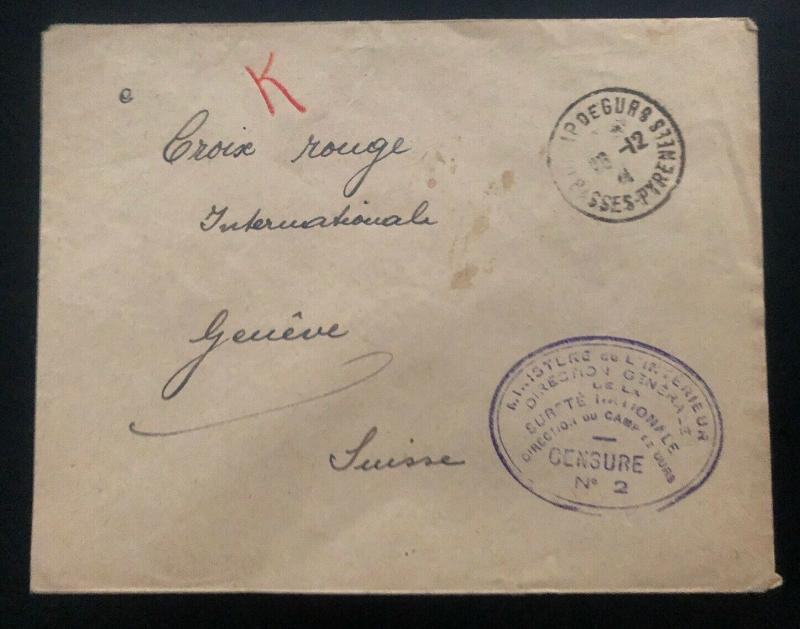 e
K
Croix rouge
Internationale
Genève
Suisse
BASSES-PYRENEES
12
MINISTERE de L'INTERIEUR
DIRECTION GENERALE
DE LA
SURETÉ NATIONALE
DIRECTION DU CAMP DE GURS
CENSURE
N° 2